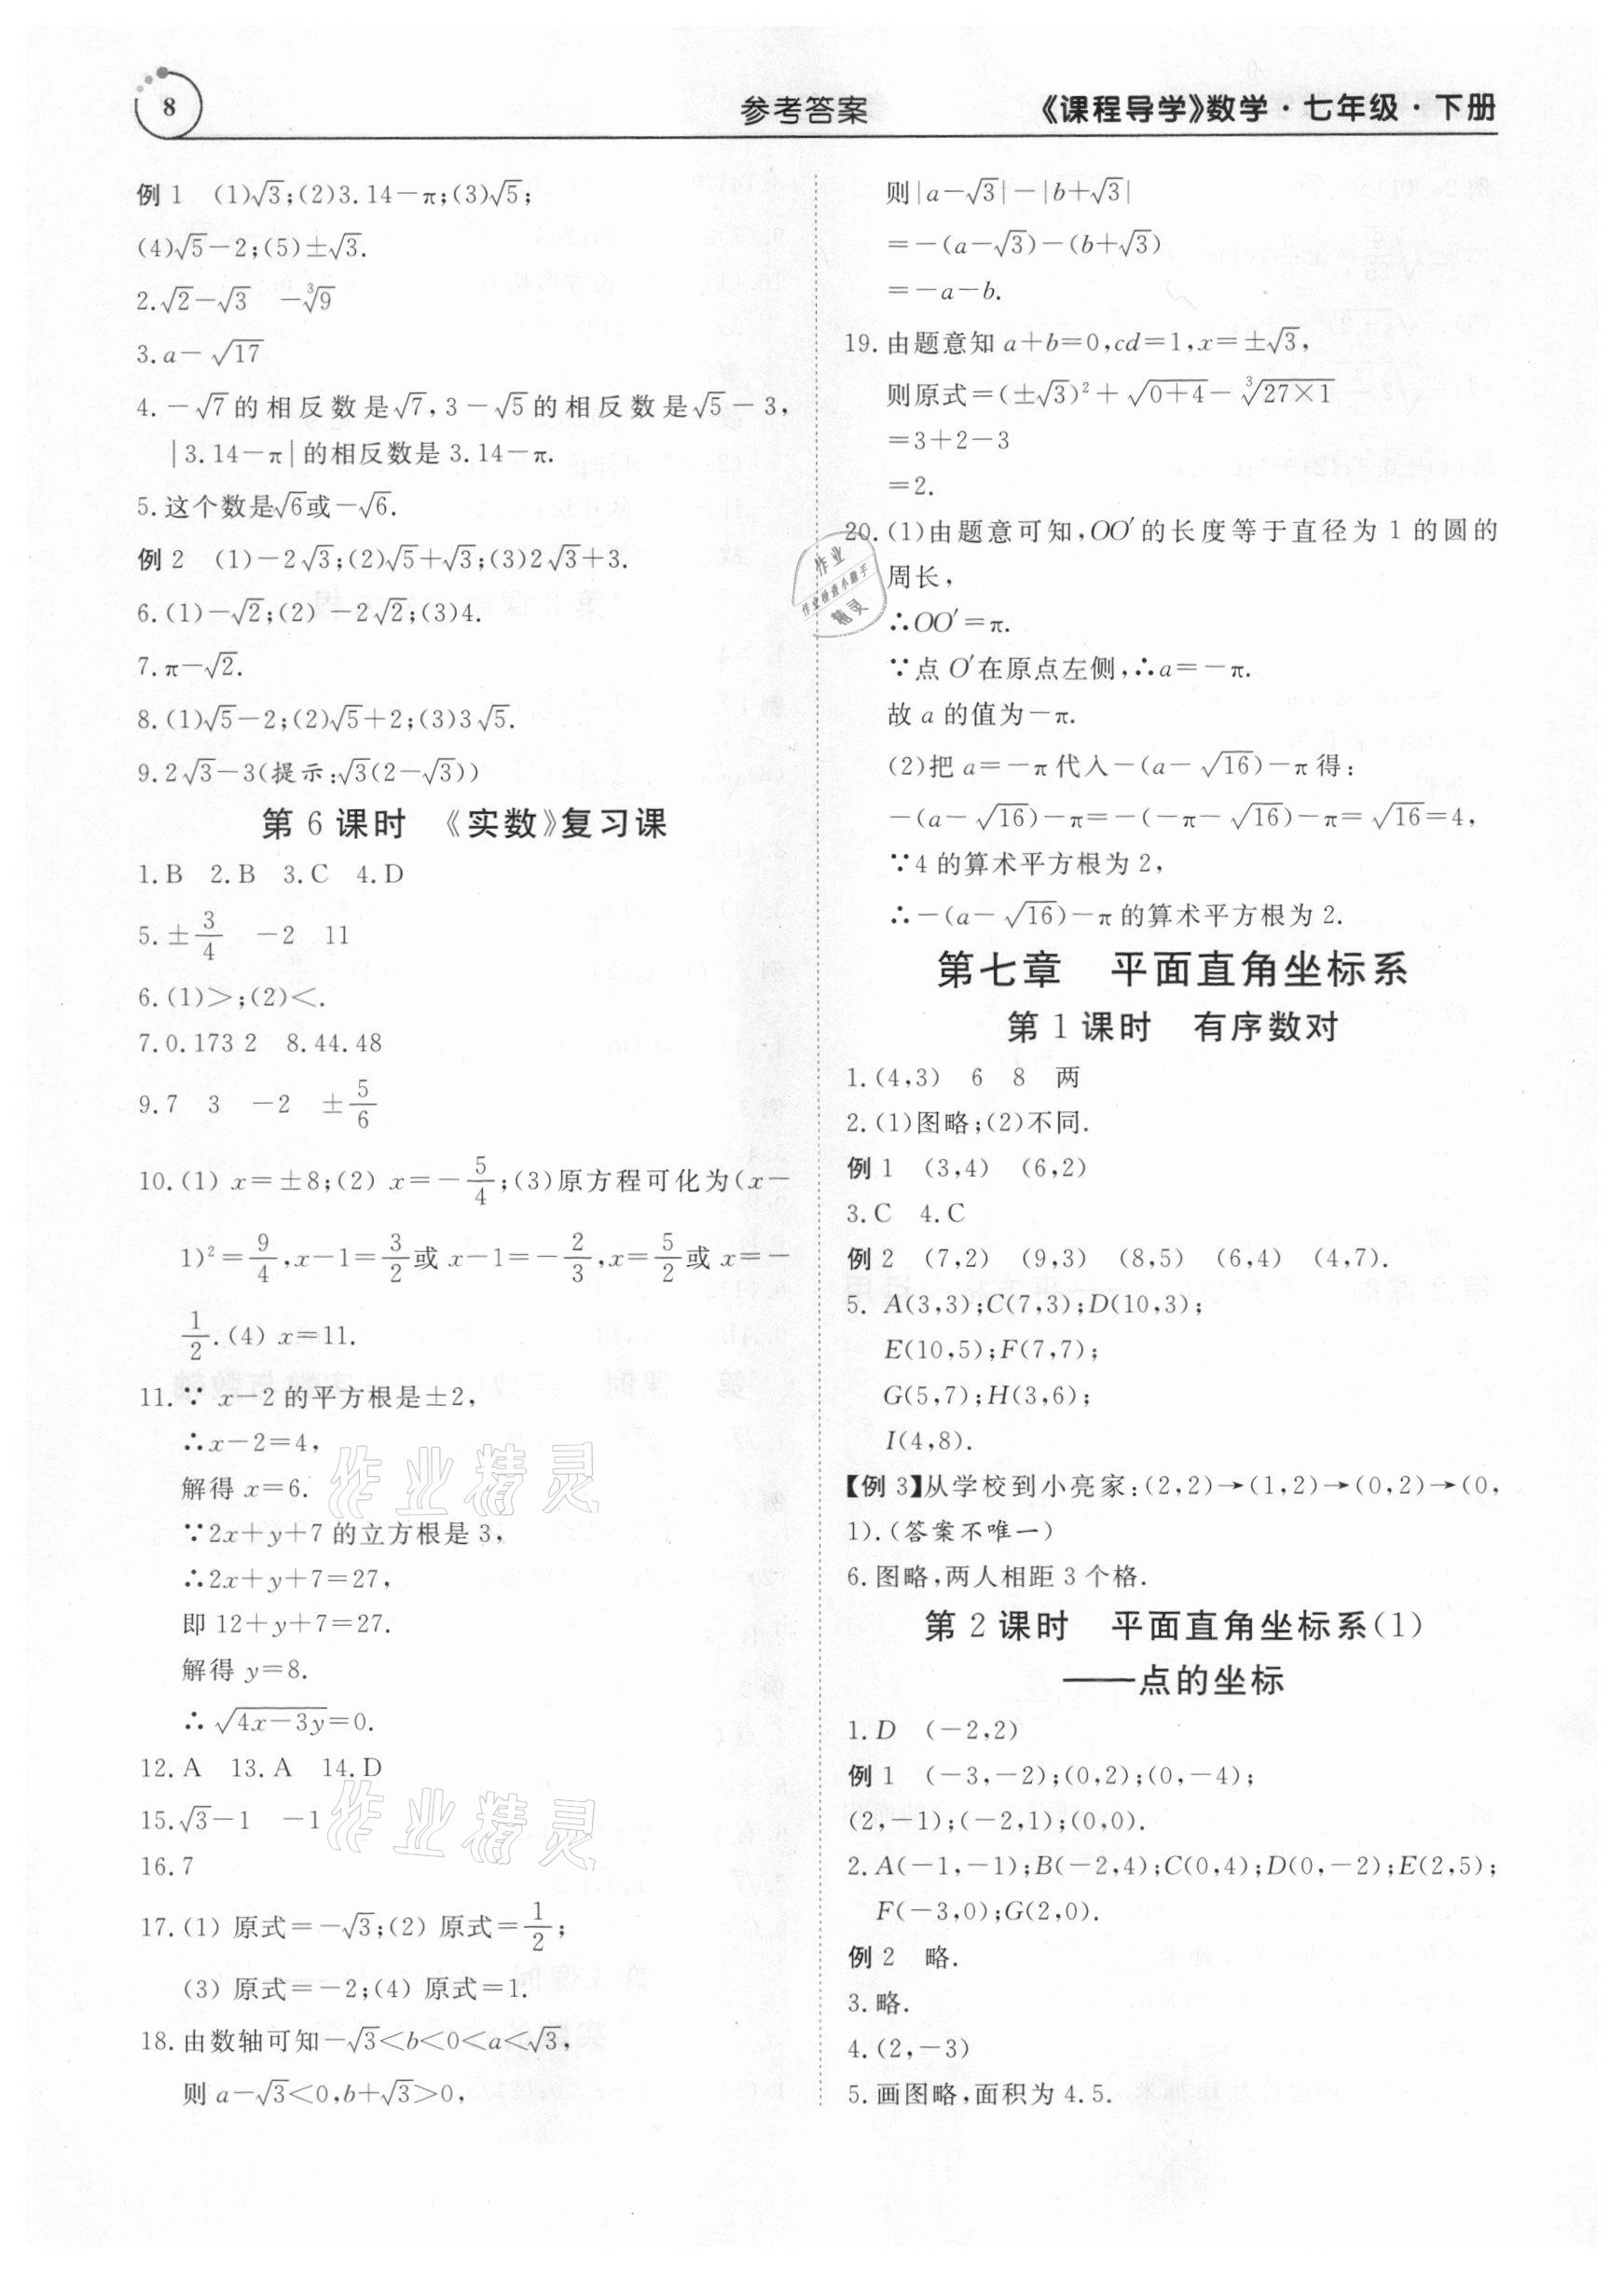 8
参考答案
《课程导学》数学·七年级·下册
例1 (1)√3;(2)3.14－π;(3)√5;
(4)√5－2;(5)±√3.
2.√2－√3 －∛9
3.a－√17
4.－√7的相反数是√7,3－√5的相反数是√5－3,
|3.14－π|的相反数是3.14－π.
5.这个数是√6或－√6.
例2 (1)－2√3;(2)√5＋√3;(3)2√3＋3.
6.(1)－√2;(2)－2√2;(3)4.
7.π－√2.
8.(1)√5－2;(2)√5＋2;(3)3√5.
9.2√3－3(提示:√3(2－√3))
第6课时 《实数》复习课
1.B 2.B 3.C 4.D
5.±3/4 －2 11
6.(1)＞;(2)＜.
7.0.173 2 8.44.48
9.7 3 －2 ±5/6
10.(1) x＝±8;(2) x＝－5/4;(3)原方程可化为(x－
1)²＝9/4,x－1＝3/2或x－1＝－2/3,x＝5/2或x＝－
1/2.(4) x＝11.
11.∵ x－2的平方根是±2,
∴x－2＝4,
解得x＝6.
∵2x＋y＋7的立方根是3,
∴2x＋y＋7＝27,
即12＋y＋7＝27.
解得y＝8.
∴ √(4x－3y)＝0.
12.A 13.A 14.D
15.√3－1 －1
16.7
17.(1) 原式＝－√3;(2) 原式＝1/2;
(3) 原式＝－2;(4) 原式＝1.
18.由数轴可知－√3＜b＜0＜a＜√3,
则a－√3＜0,b＋√3＞0,
则|a－√3|－|b＋√3|
＝－(a－√3)－(b＋√3)
＝－a－b.
19.由题意知a＋b＝0,cd＝1,x＝±√3,
则原式＝(±√3)²＋√(0＋4)－∛(27×1)
＝3＋2－3
＝2.
20.(1)由题意可知,OO′的长度等于直径为1的圆的
周长,
∴OO′＝π.
∵点O′在原点左侧,∴a＝－π.
故a的值为－π.
(2)把a＝－π代入－(a－√16)－π得:
－(a－√16)－π＝－(－π－√16)－π＝√16＝4,
∵4的算术平方根为2,
∴－(a－√16)－π的算术平方根为2.
第七章 平面直角坐标系
第1课时 有序数对
1.(4,3) 6 8 两
2.(1)图略;(2)不同.
例1 (3,4) (6,2)
3.C 4.C
例2 (7,2) (9,3) (8,5) (6,4) (4,7).
5. A(3,3);C(7,3);D(10,3);
E(10,5);F(7,7);
G(5,7);H(3,6);
I(4,8).
【例3】从学校到小亮家:(2,2)→(1,2)→(0,2)→(0,
1).(答案不唯一)
6.图略,两人相距3个格.
第2课时 平面直角坐标系(1)
——点的坐标
1.D (－2,2)
例1 (－3,－2);(0,2);(0,－4);
(2,－1);(－2,1);(0,0).
2.A(－1,－1);B(－2,4);C(0,4);D(0,－2);E(2,5);
F(－3,0);G(2,0).
例2 略.
3.略.
4.(2,－3)
5.画图略,面积为4.5.
作业
作业检查小助手
精灵
作业精灵
作业精灵